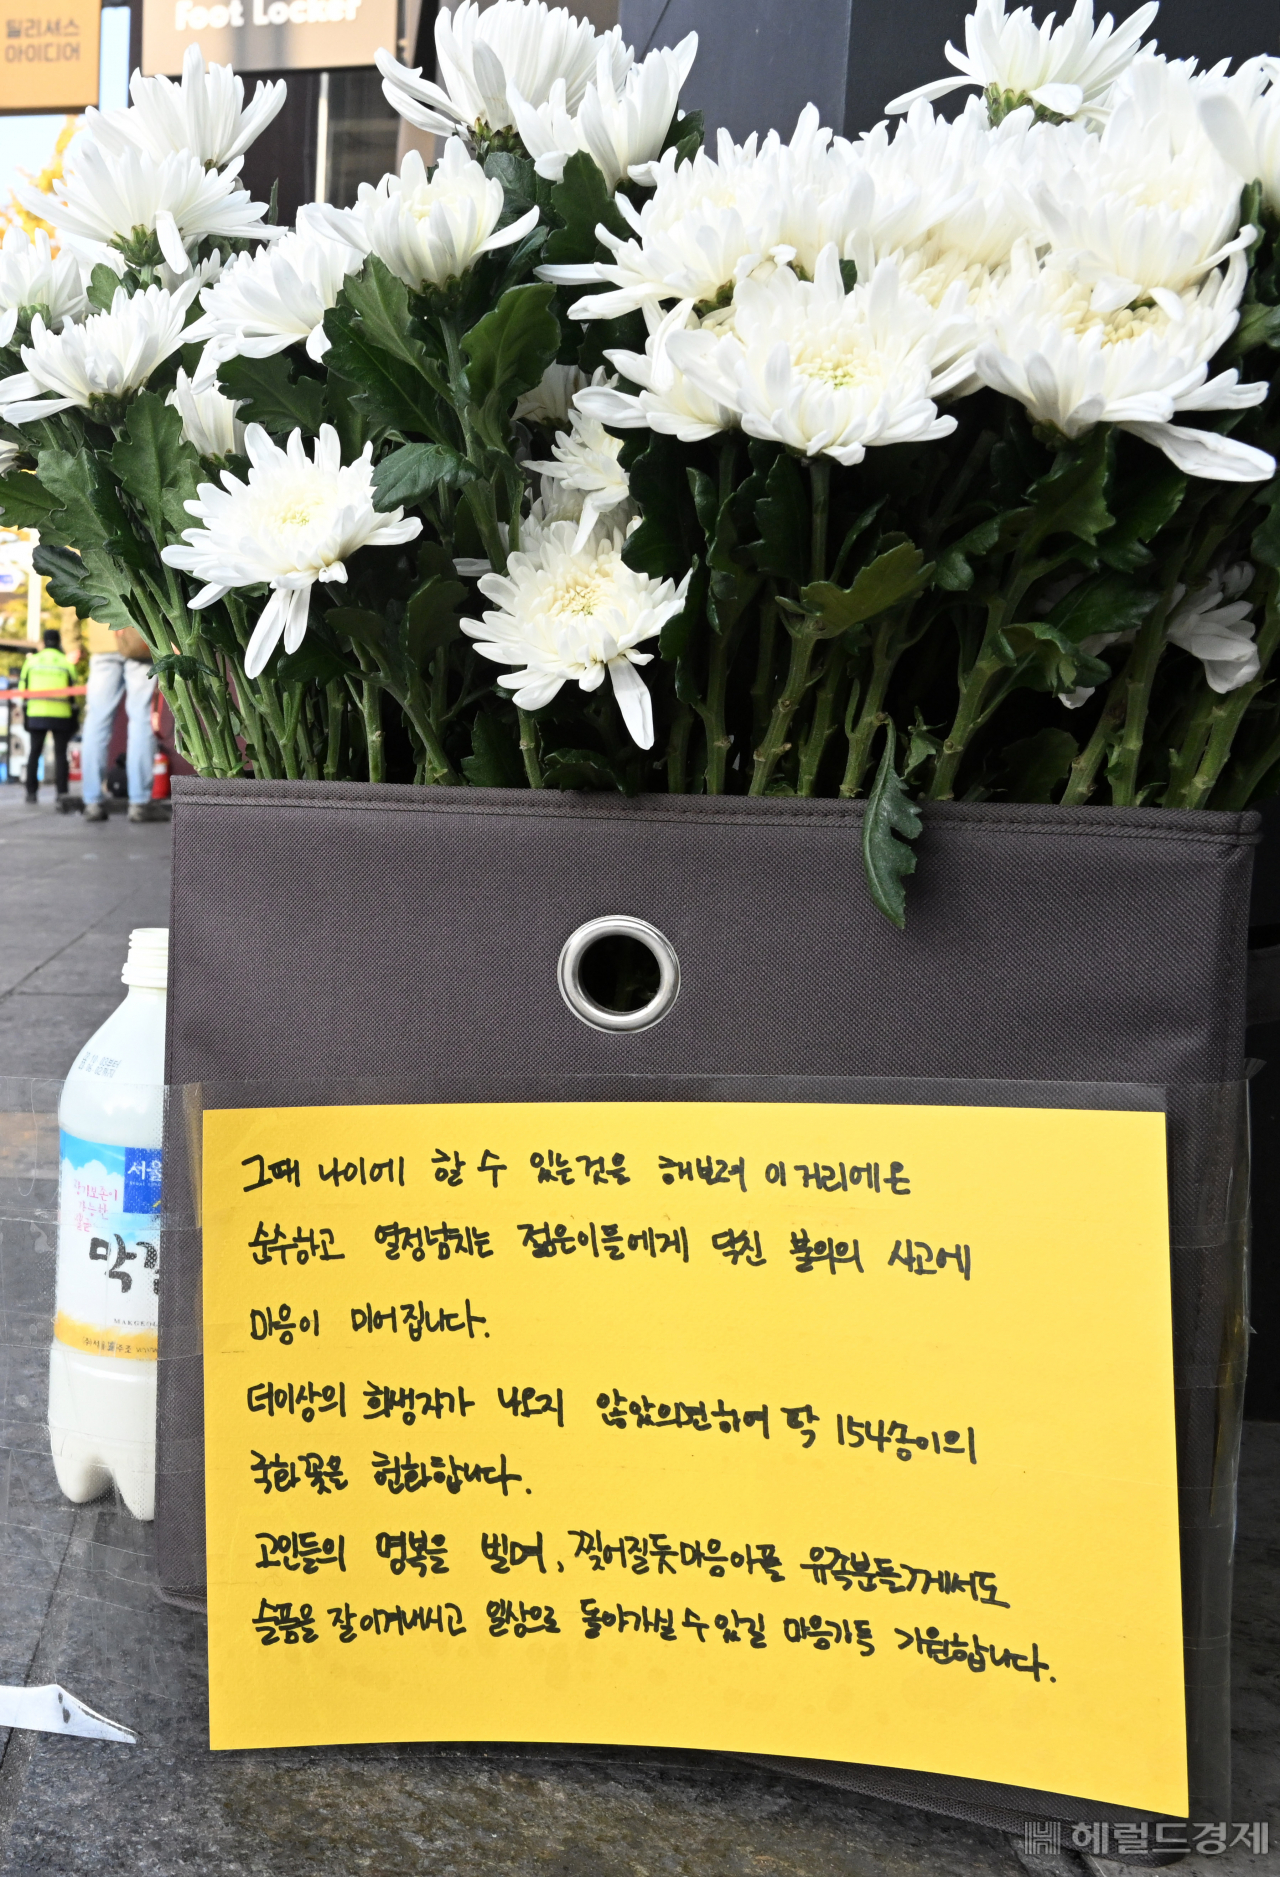 딜리셔스
아이디어
Foot Locker
서울
막걸
MAKGEO
그때 나이에 할 수 있는것을 해보려 이 거리에온
순수하고 열정넘치는 젊은이들에게 닥친 불의의 사고에
마음이 미어집니다.
더이상의 희생자가 나오지 않았으면하여 딱 154송이의
국화꽃을 헌화합니다.
고인들의 명복을 빌며, 찢어질듯마음아플 유족분들께서도
슬픔을 잘 이겨내시고 일상으로 돌아가실 수 있길 마음가득 기원합니다.
헤럴드경제